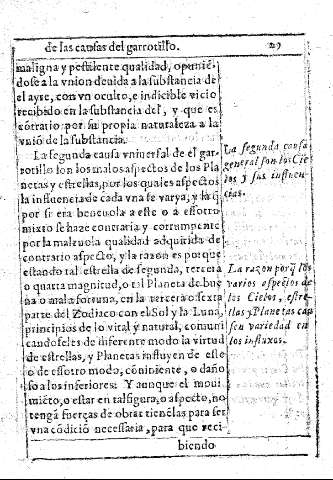 de las causas del garrotillo. 27
maligna y pestilente qualidad, opuniẽ-
dose a la vnion deuida a la substancia de
el ayre, con vn oculto, e indicible vicio
recibido en la substancia del, y que es
cõtrario por su propia naturaleza a la
vnió de la substancia.
La segunda causa vniuersal de el gar-
rotillo son los malos aspectos de los Pla
netas y estrellas, por los quales aspectos
la influencia de cada vna se varya, y la q̃
por si era beneuola a este o a essotro
mixto se haze contraria y corrumpente
por la maleuola qualidad adquirida de
contrario aspecto, y la razon es porque
estando tal estrella de segunda, tercera
o quarta magnitud, o tal Planeta de bue
na o mala fortuna, en la tercera o sexta
parte del Zodiaco con el Sol y la Luna,
principios de lo vital y natural, comuni
candoseles de diferente modo la virtud
de estrellas, y Planetas influyen de este
o de essotro modo, cõniniente, o daño
so a los inferiores: Y aunque el moui
miẽto, o estar en tal figura, o aspecto, no
tengã fuerças de obrar tienẽlas para ser
vna cõdiciõ necessaria, para que reci
biendo
La segunda causa
general son los Cie
los y sus influen-
cias.
La razon porq̃ los
varios aspectos de
los Cielos, estre-
llas y Planetas cau
sen variedad en
los influxos.